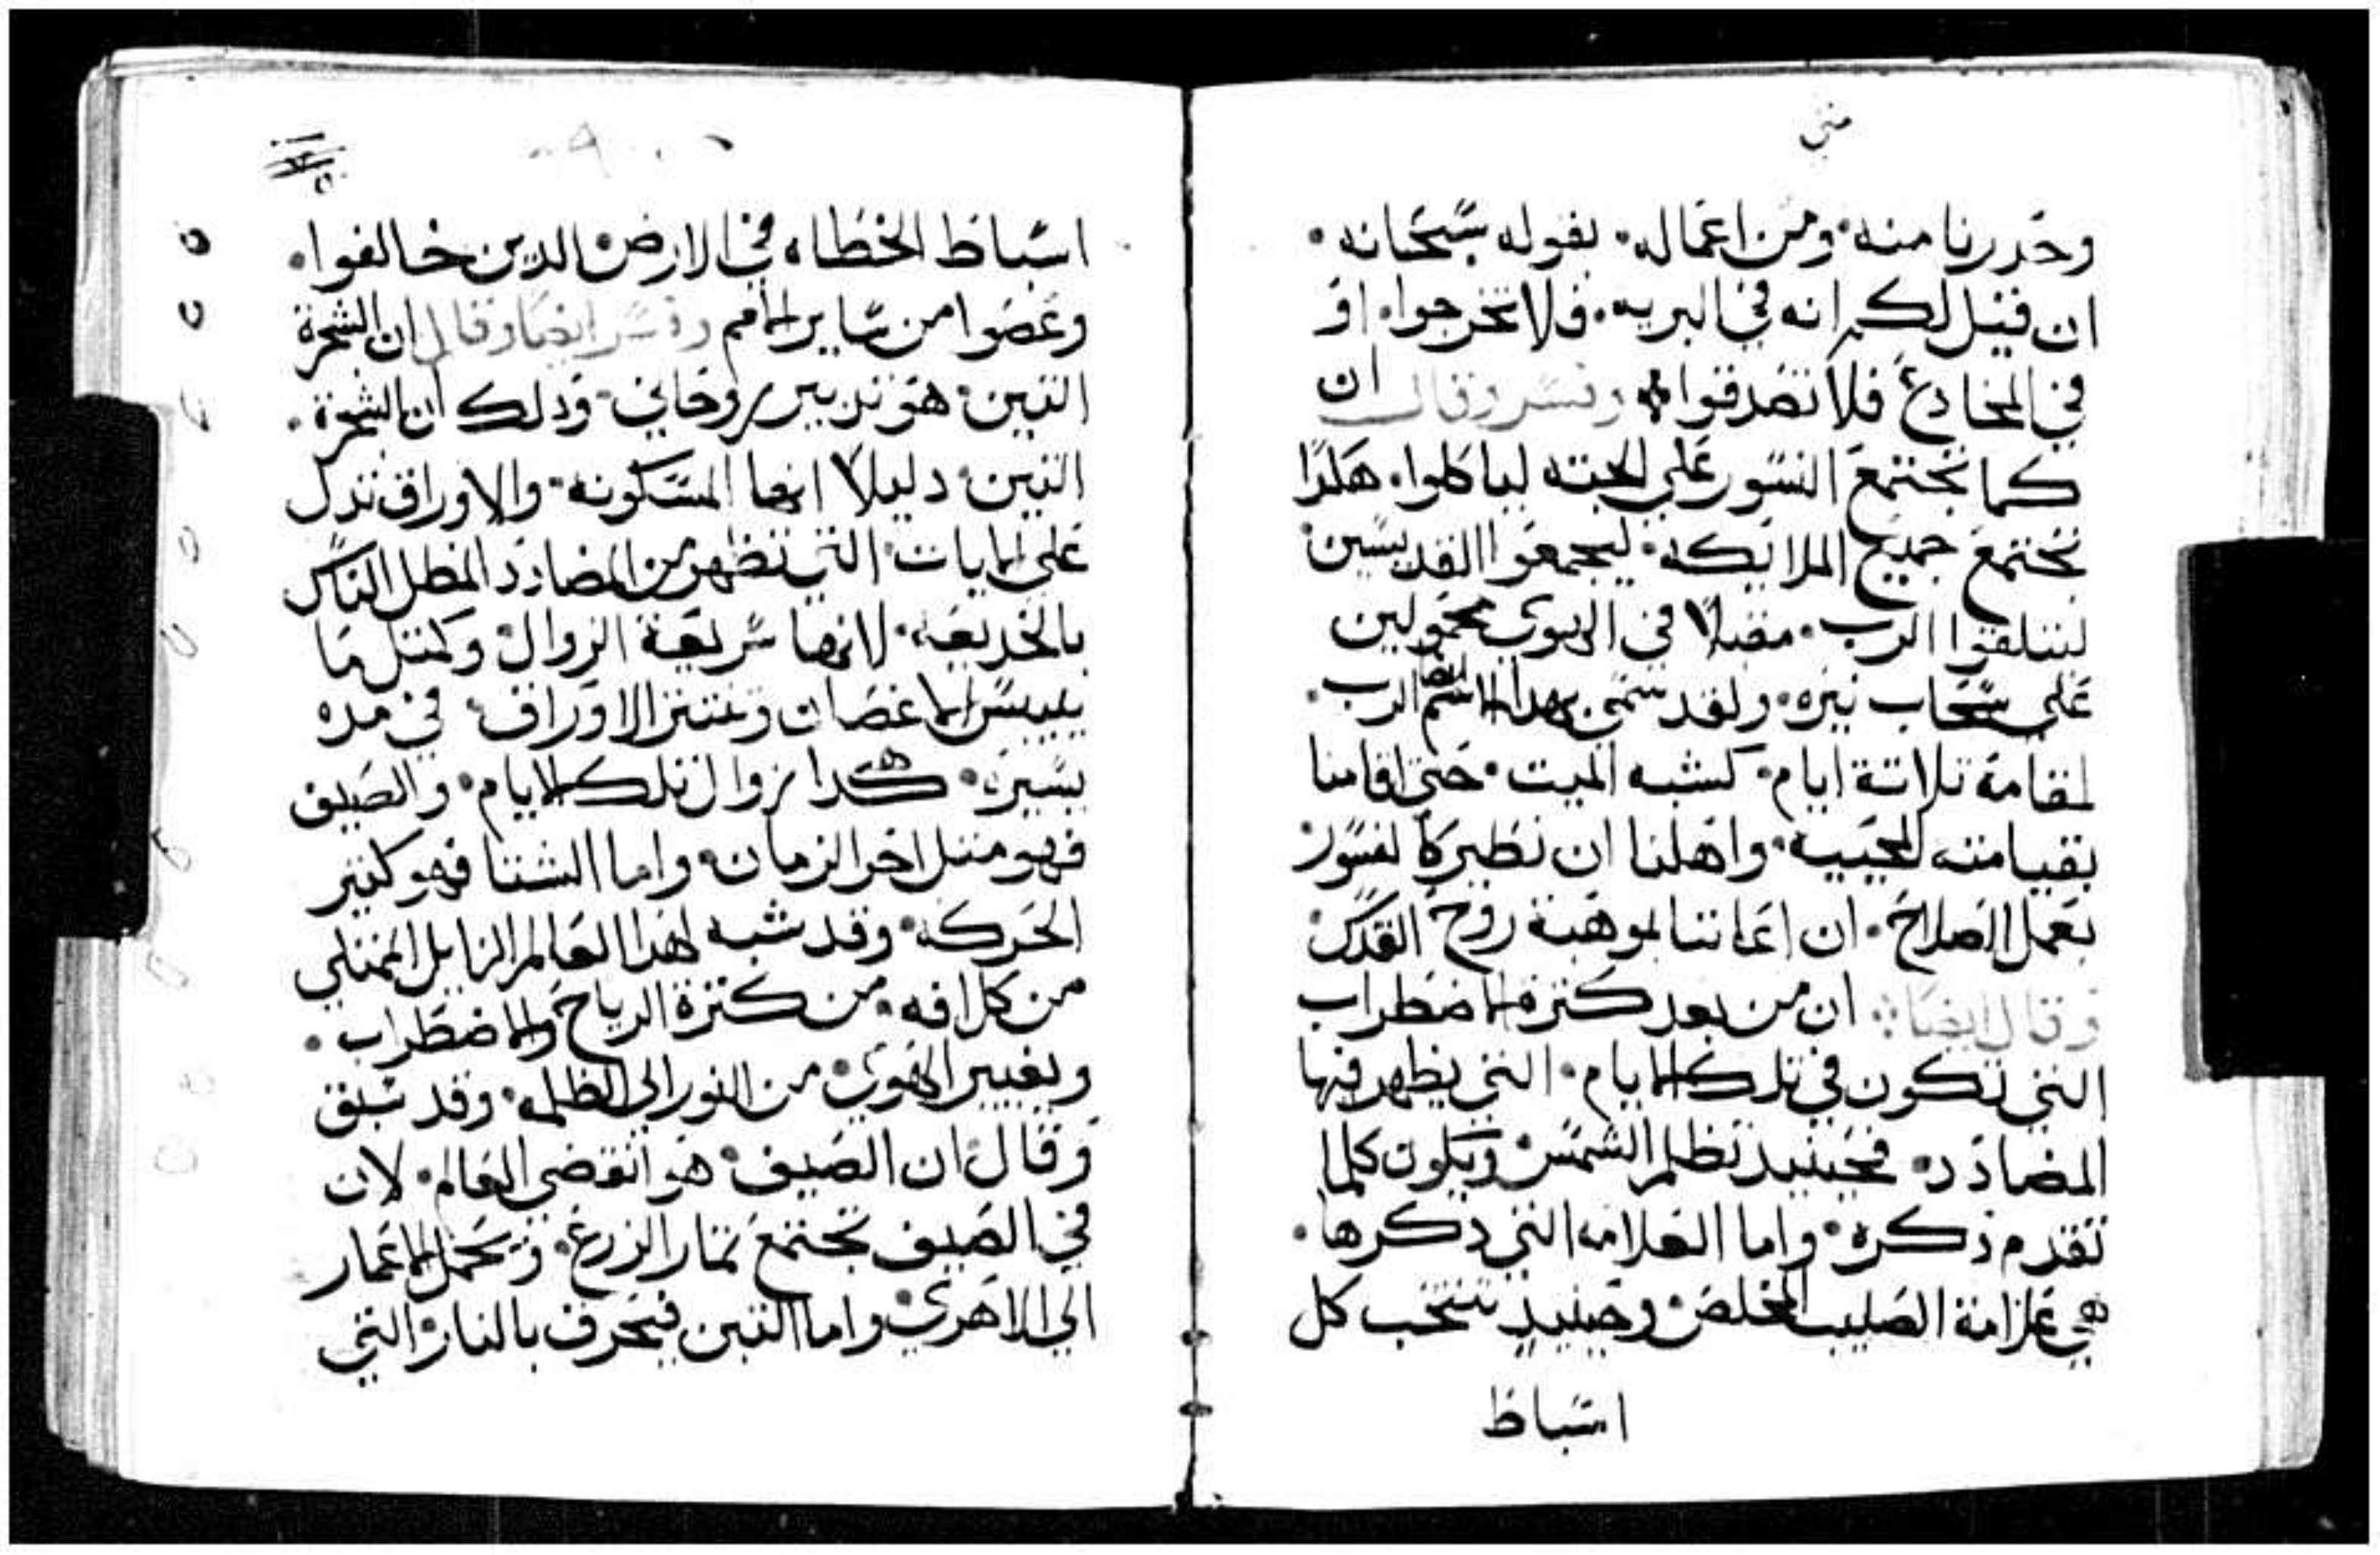 متي
وحدرنا منه٠ ومن اعماله٠ بقوله سبحانه٠
ان قيل لكم انه في البريه٠ فلا تخرجوا٠ او
في المخادع فلا تصدقوا٠ وفسر وقال ان
كما تجتمع النسور علي الجته لياكلوا٠ هكدا
تجتمع جميع الملايكه٠ ليجمعوا القديسين
ليتلقوا الرب٠ مقبلا في الهوي محمولين
علي سحاب نيره٠ ولقد سمي ايضا بهدا الاسم الرب٠
لمقامة تلاتة ايام٠ كشبه الميت٠ حتي اقامنا
بقيامته المحييه٠ واهلنا ان نطير كالنسور
بعمل الصلاح٠ ان اعاننا بموهبة روح القدس
وقال ايضا ان من بعد كترة الاضطراب
التي تكون في تلك الايام٠ التي يظهر فيها
المضادد٠ فحينيد تظلم الشمس ويكون كلما
تقدم ذكره٠ واما العلامه التي دكرها٠
هي علامة الصليب المخلص٠ وحينيد تنتحب كل
اسباط
اسباط الخطاه في الارض الدين خالفوا٠
وعصوا من ساير الامم وفسر ايضا وقال ان الشجرة
التين٠ هو تدبير روحاني٠ ودلك ان الشجرة٠
التين٠ دليلا انها المسكونه٠ والاوراق تدل
علي الايات٠ التي تظهر من المضادد المظل الناس
بالخديعه٠ لانها سريعة الزوال٠ وكمتل ما
ييبس الاغصان وتنتتر الاوراق٠ في مده
يسيره٠ هكدا زوال تلك الايام٠ والصيف
فهو متل اخر الزمان٠ واما الشتا فهو كتير
الحركه٠ وقد شبه لهدا العالم الزايل الممتلي
من كل افه٠ من كترة الرياح والاضطراب٠
وتغيير الهوي٠ من النور الي الظلمه٠ وقد سبق
وقال٠ ان الصيف٠ هو انقضي العالم٠ لان
في الصيف تجتمع تمار الزرع٠ وتحمل الاغمار
الي الاهري٠ واما التبن فيحرق بالنار٠ التي